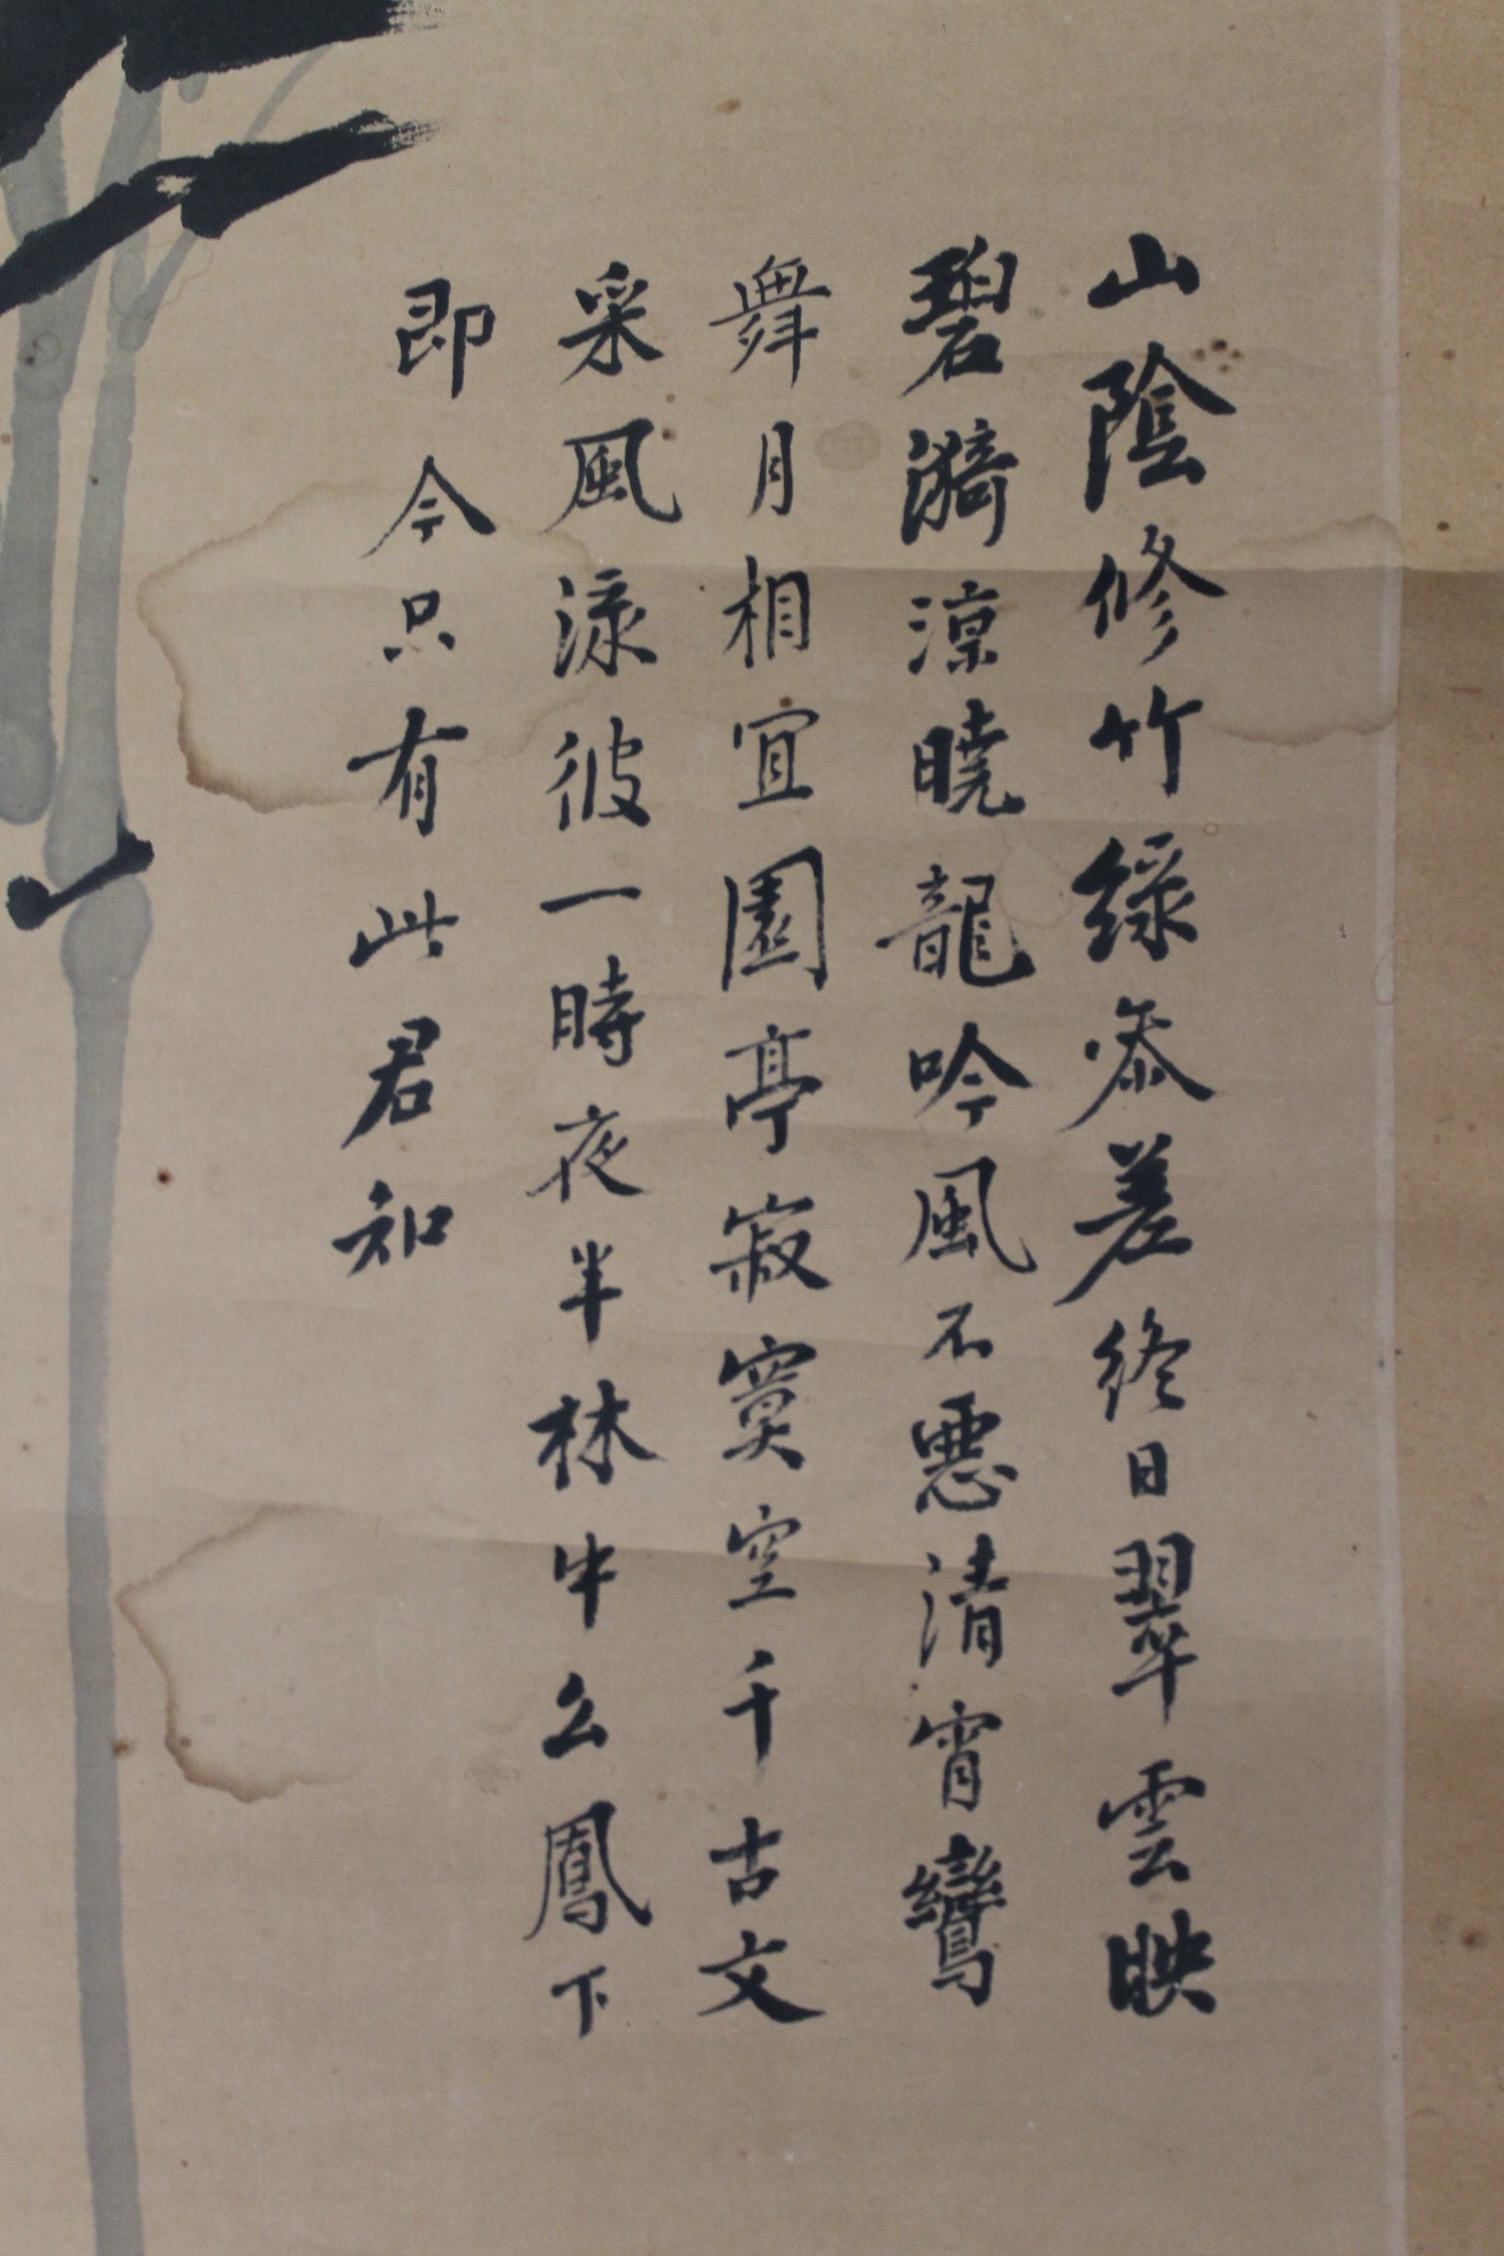 山陰修竹綠參差終日翠雲映
碧漪涼曉龍吟風不惡清宵鸞
舞月相宜園亭寂寞空千古文
采風流彼一時夜半林中幺鳳下
即今只有此君知